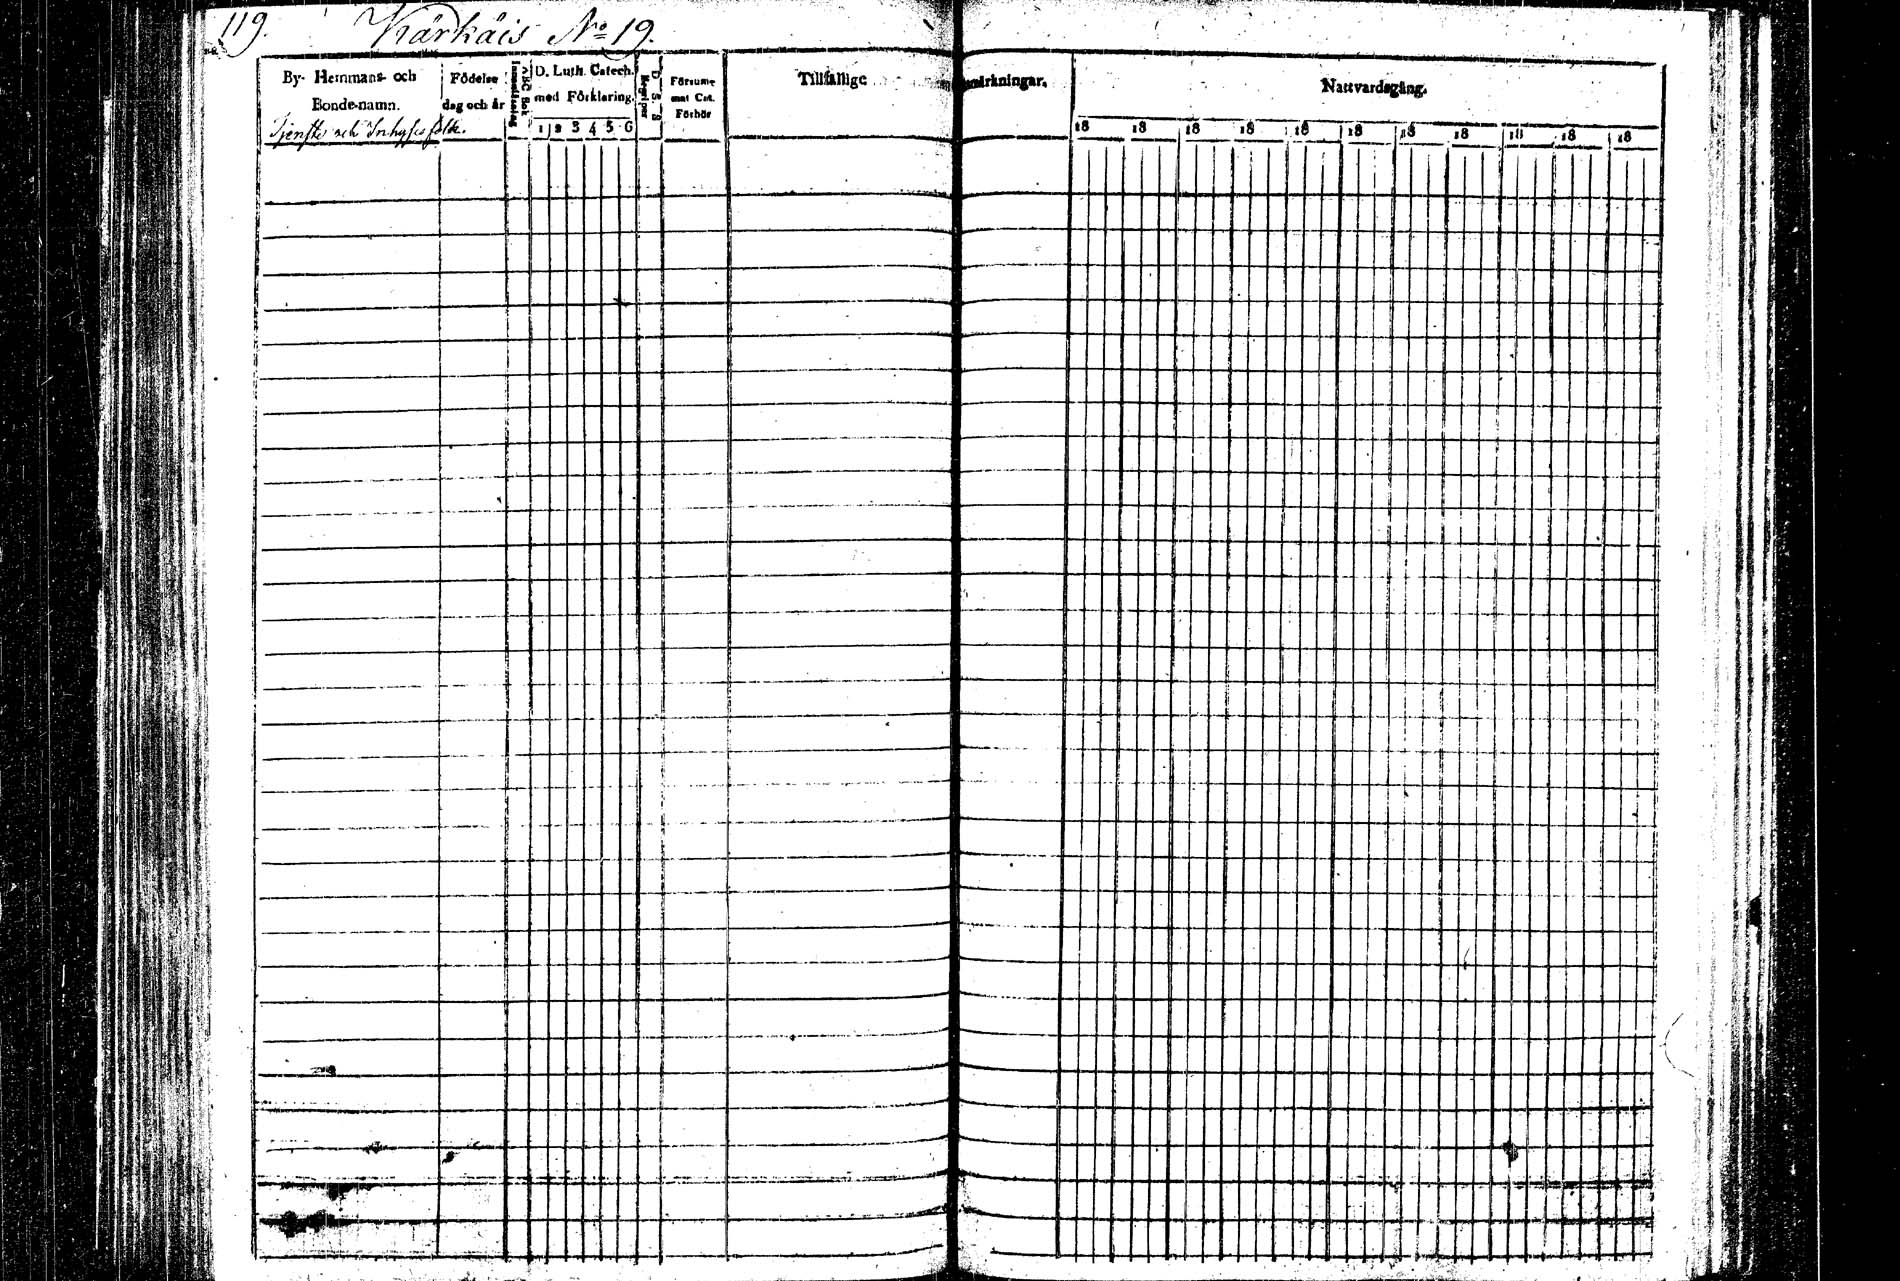 119. Kärkäis No 19.
By- Hemmans- och
Bonde-namn.
Tjenste och Inhyses folk.
Födelse
dag och år
Innanläsning
ABC Bok
D. Luth. Catech.
med Förklaring.
1 2 3 4 5 6
D. S. S.
Begriper
Försum-
mat Cat.
Förhör
Tillfällige Anmärkningar.
Nattvardsgång.
18 18 18 18 18 18 18 18 18 18 18